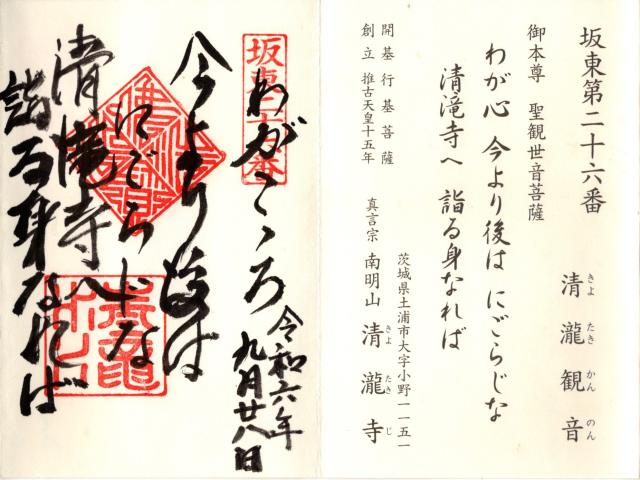 坂東第二十六番
清瀧観音
きよ たき かん のん
御本尊 聖観世音菩薩
わが心 今より後は にごらじな
清滝寺へ 詣る身なれば
開基 行基菩薩
創立 推古天皇十五年
茨城県土浦市大字小野一一五一
真言宗 南明山 清瀧寺
きよ たき じ
坂東二十六番
わがこゝろ
今より後は
にごらじな
清滝寺へ
詣る身なれば
令和六年
九月廿八日